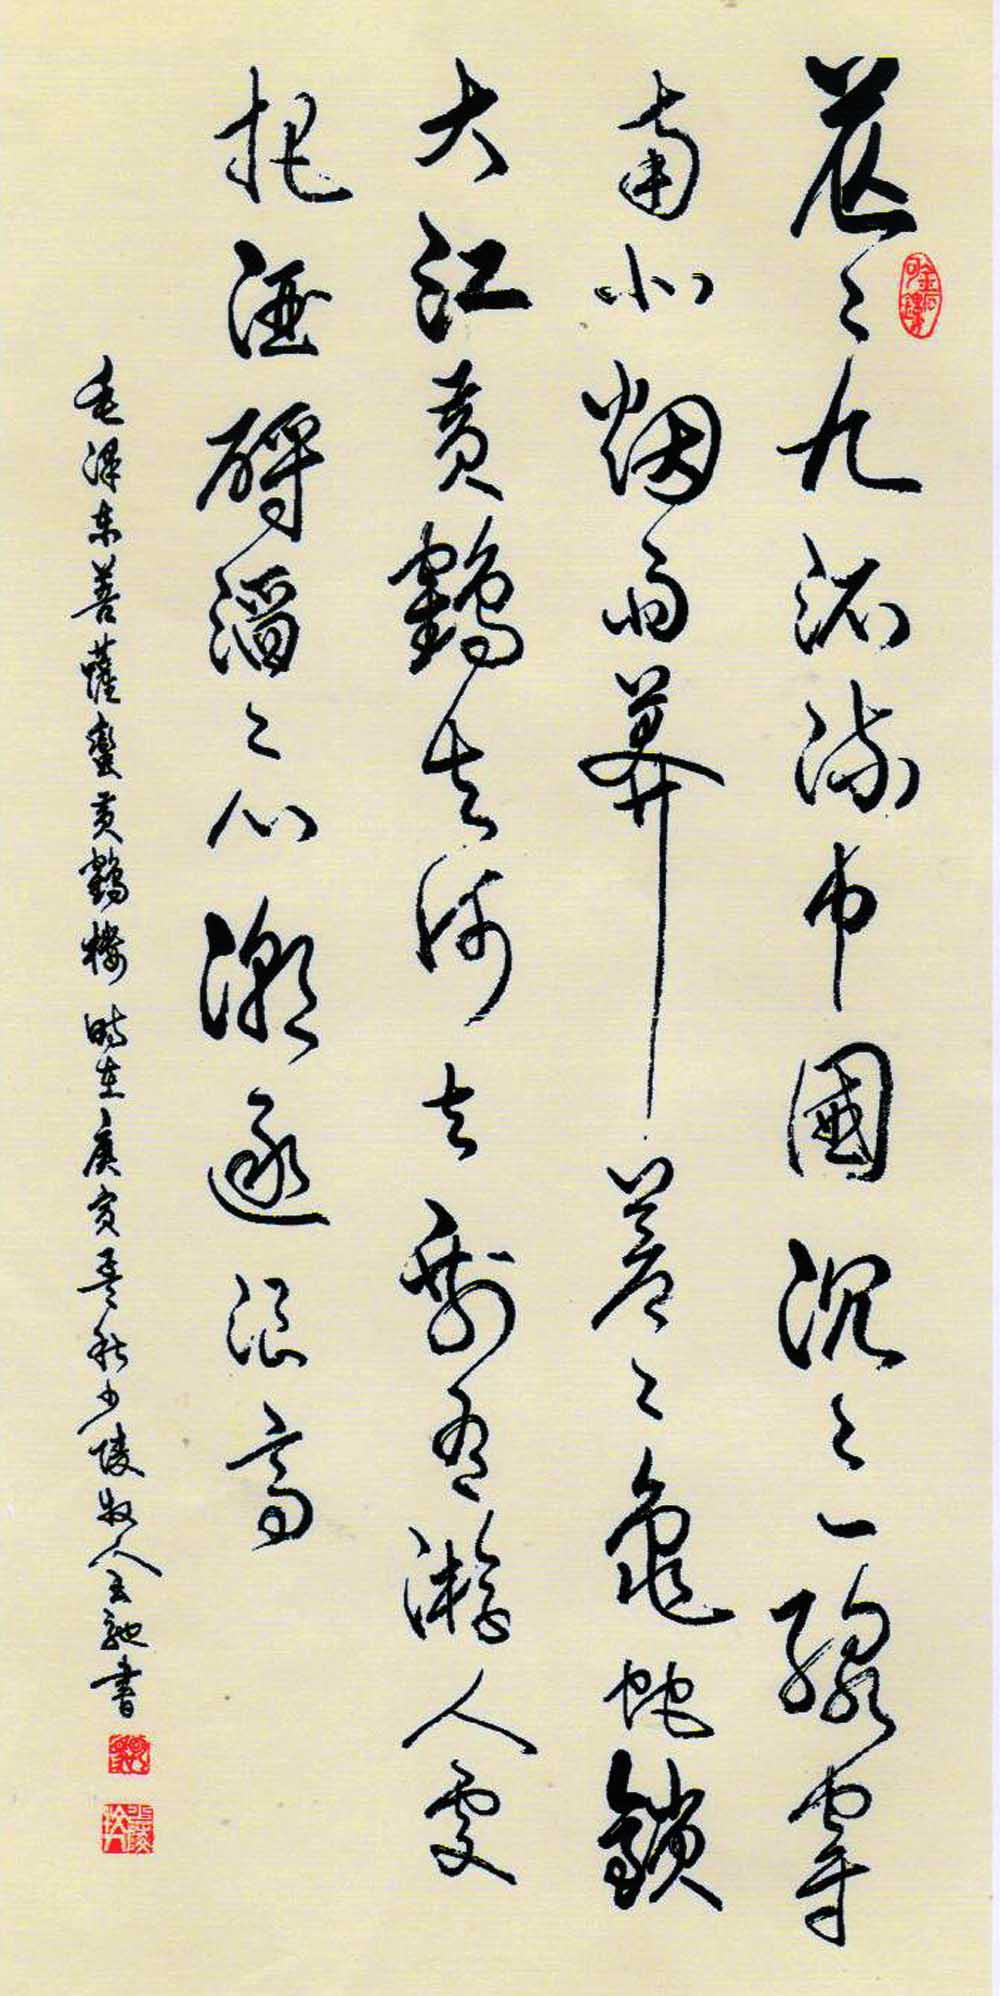 茫〻九派流中國沉〻一線穿
南北烟雨莽蒼〻龜蛇鎖
大江黄鶴知何去剩有游人處
把酒酹滔〻心潮逐浪高
毛澤東菩薩蠻黄鶴樓 時在庚寅孟秋少陵牧人書